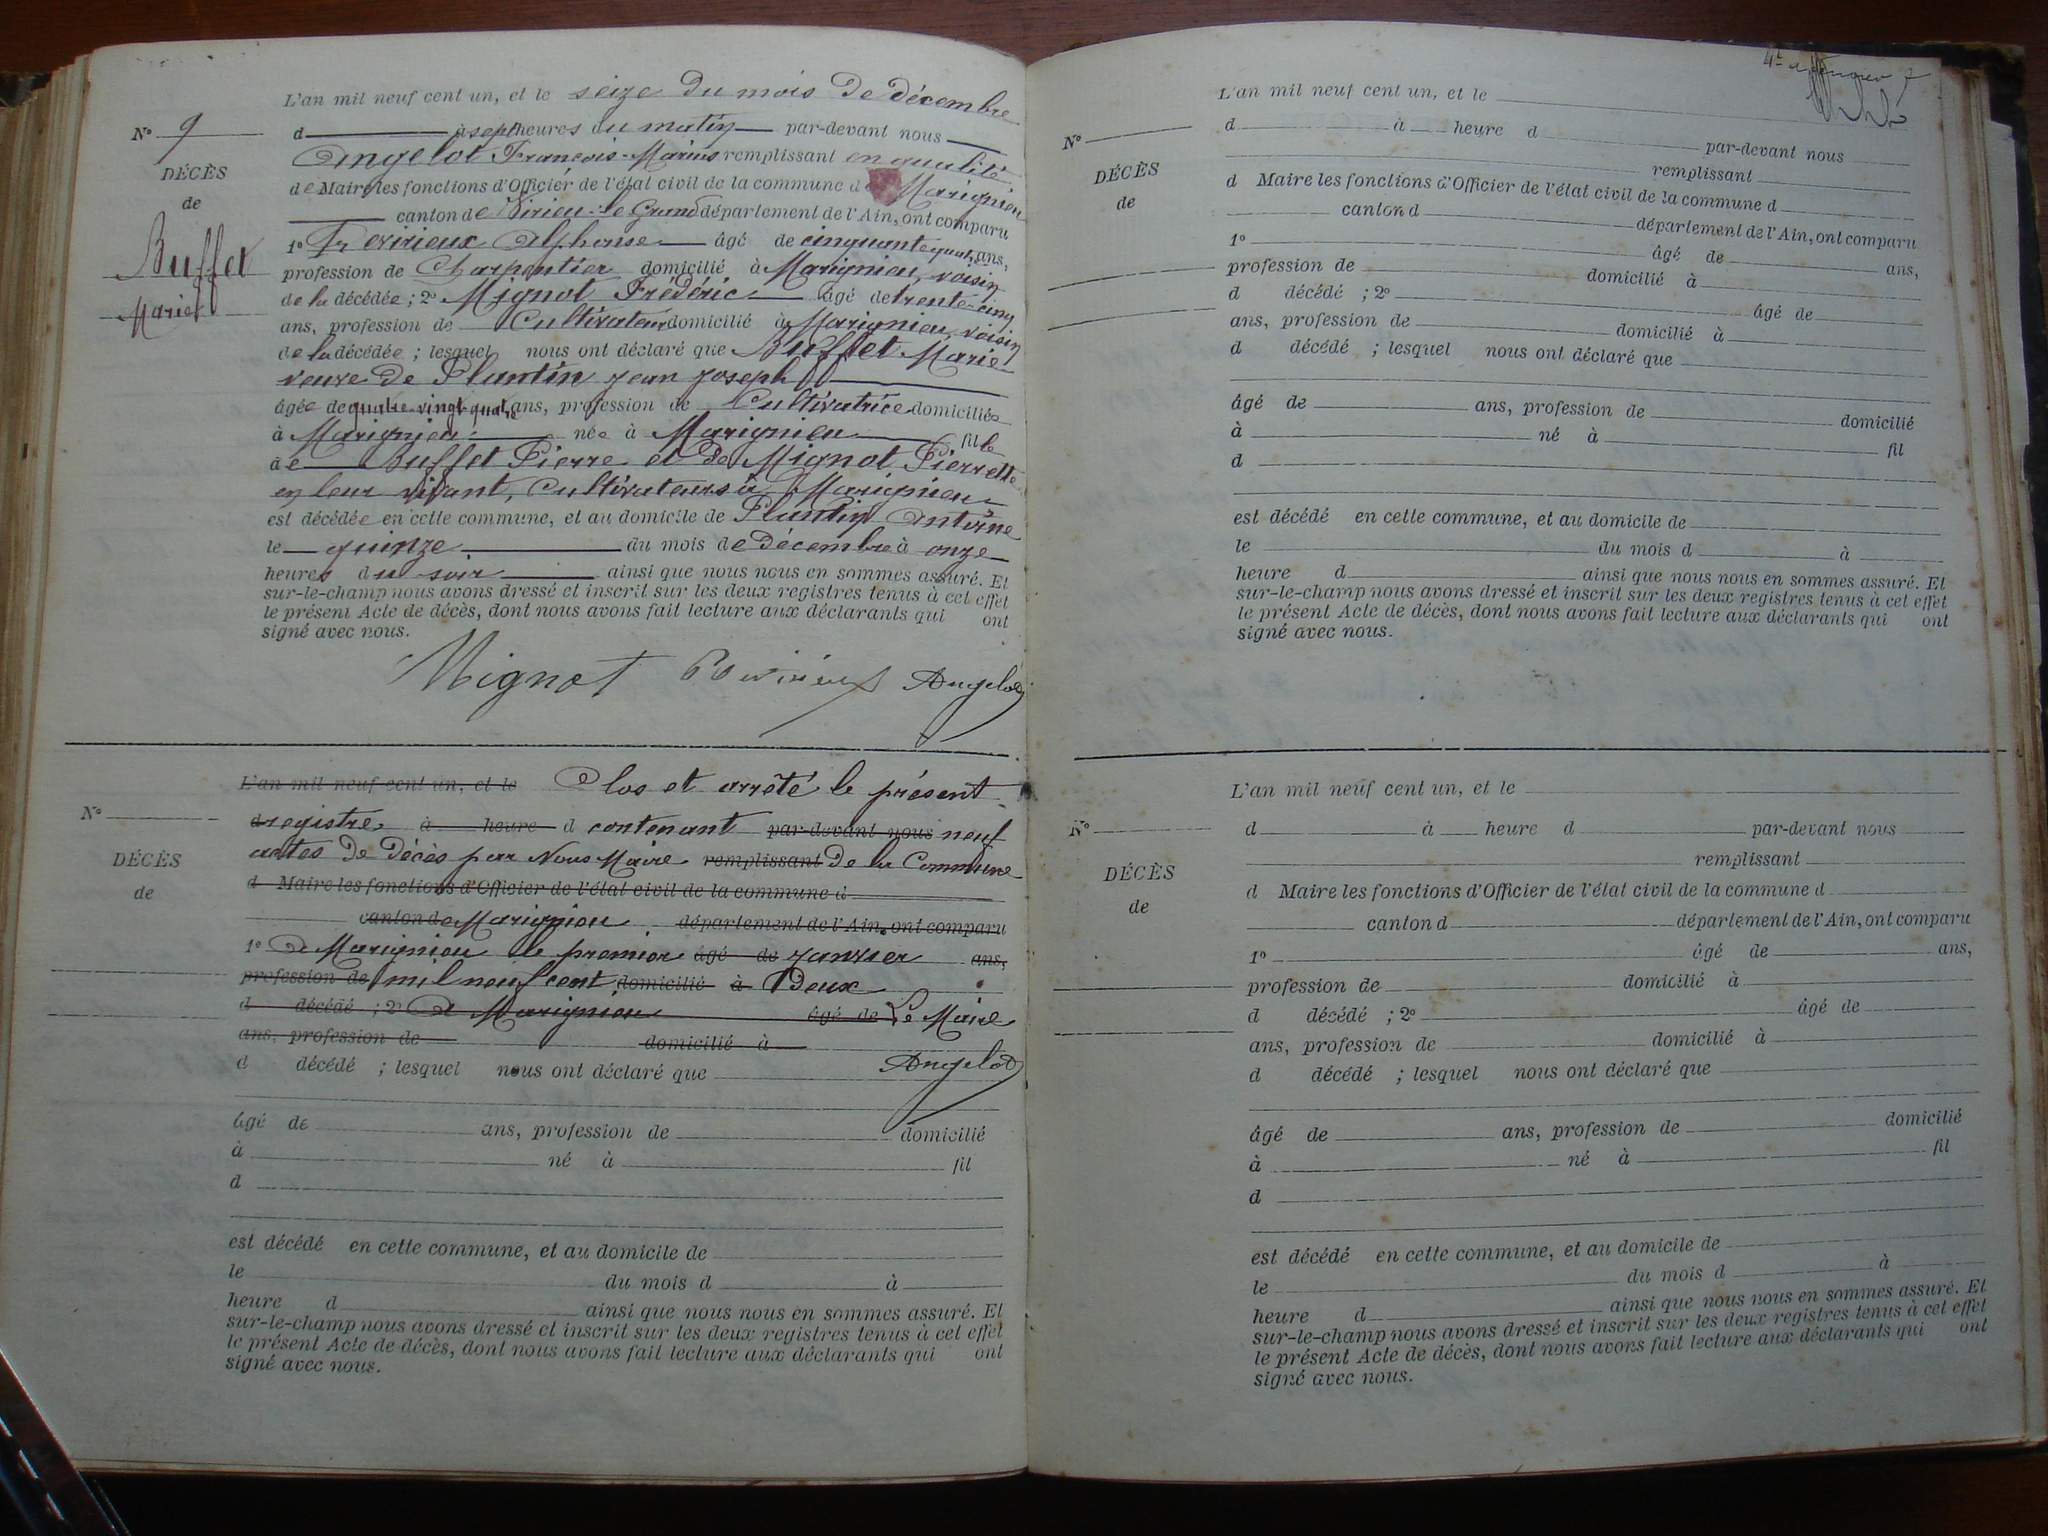 L'an mil neuf cent un, et le seize du mois de décembre
N° 9
d à sept heures du matin par-devant nous
Angelot François-Marius remplissant en qualité
DÉCÈS
de Maire les fonctions d'Officier de l'état civil de la commune de Marignieu
de
canton de Virieu-le-Grand département de l'Ain, ont comparu
Buffet
Marie
1° Alphonse âgé de cinquante quatre ans,
profession de Charpentier domicilié à Marignieu, voisin
de la décédée ; 2° Mignot Frédéric âgé de trente-cinq
ans, profession de Cultivateur domicilié à Marignieu, voisin
de la décédée ; lesquel nous ont déclaré que Buffet Marie
veuve de Plantin Jean Joseph
âgée de quatre-vingt-quatre ans, profession de Cultivatrice domiciliée
à Marignieu née à Marignieu fille
de Buffet Pierre et de Mignot Pierrette
en leur vivant, Cultivateurs à Marignieu
est décédée en cette commune, et au domicile de Plantin Antoine
le quinze du mois de Décembre à onze
heures du soir ainsi que nous nous en sommes assuré. Et
sur-le-champ nous avons dressé et inscrit sur les deux registres tenus à cet effet
le présent Acte de décès, dont nous avons fait lecture aux déclarants qui ont
signé avec nous.
Mignot Angelot
L'an mil neuf cent un, et le Clos et arrêté le présent
N°
d registre à heure d contenant par-devant nous neuf
actes de décès par Nous Maire remplissant de la Commune
DÉCÈS
d Maire les fonctions d'Officier de l'état civil de la commune d
de
canton de Marignieu département de l'Ain, ont comparu
1° De Marignieu le premier âgé de janvier ans,
profession de mil neuf cent domicilié à Deux
d décédé ; 2° De Marignieu âgé de Le Maire
ans, profession de domicilié à
Angelot
d décédé ; lesquel nous ont déclaré que
âgé de ans, profession de domicilié
à né à fil
d
est décédé en cette commune, et au domicile de
le du mois d à
heure d ainsi que nous nous en sommes assuré. Et
sur-le-champ nous avons dressé et inscrit sur les deux registres tenus à cet effet
le présent Acte de décès, dont nous avons fait lecture aux déclarants qui ont
signé avec nous.
L'an mil neuf cent un, et le
N°
d à heure d par-devant nous
remplissant
DÉCÈS
d Maire les fonctions d'Officier de l'état civil de la commune d
de
canton d département de l'Ain, ont comparu
1° âgé de ans,
profession de domicilié à
d décédé ; 2° âgé de
ans, profession de domicilié à
d décédé ; lesquel nous ont déclaré que
âgé de ans, profession de domicilié
à né à fil
d
est décédé en cette commune, et au domicile de
le du mois d à
heure d ainsi que nous nous en sommes assuré. Et
sur-le-champ nous avons dressé et inscrit sur les deux registres tenus à cet effet
le présent Acte de décès, dont nous avons fait lecture aux déclarants qui ont
signé avec nous.
L'an mil neuf cent un, et le
N°
d à heure d par-devant nous
remplissant
DÉCÈS
d Maire les fonctions d'Officier de l'état civil de la commune d
de
canton d département de l'Ain, ont comparu
1° âgé de ans,
profession de domicilié à
d décédé ; 2° âgé de
ans, profession de domicilié à
d décédé ; lesquel nous ont déclaré que
âgé de ans, profession de domicilié
à né à fil
d
est décédé en cette commune, et au domicile de
le du mois d à
heure d ainsi que nous nous en sommes assuré. Et
sur-le-champ nous avons dressé et inscrit sur les deux registres tenus à cet effet
le présent Acte de décès, dont nous avons fait lecture aux déclarants qui ont
signé avec nous.